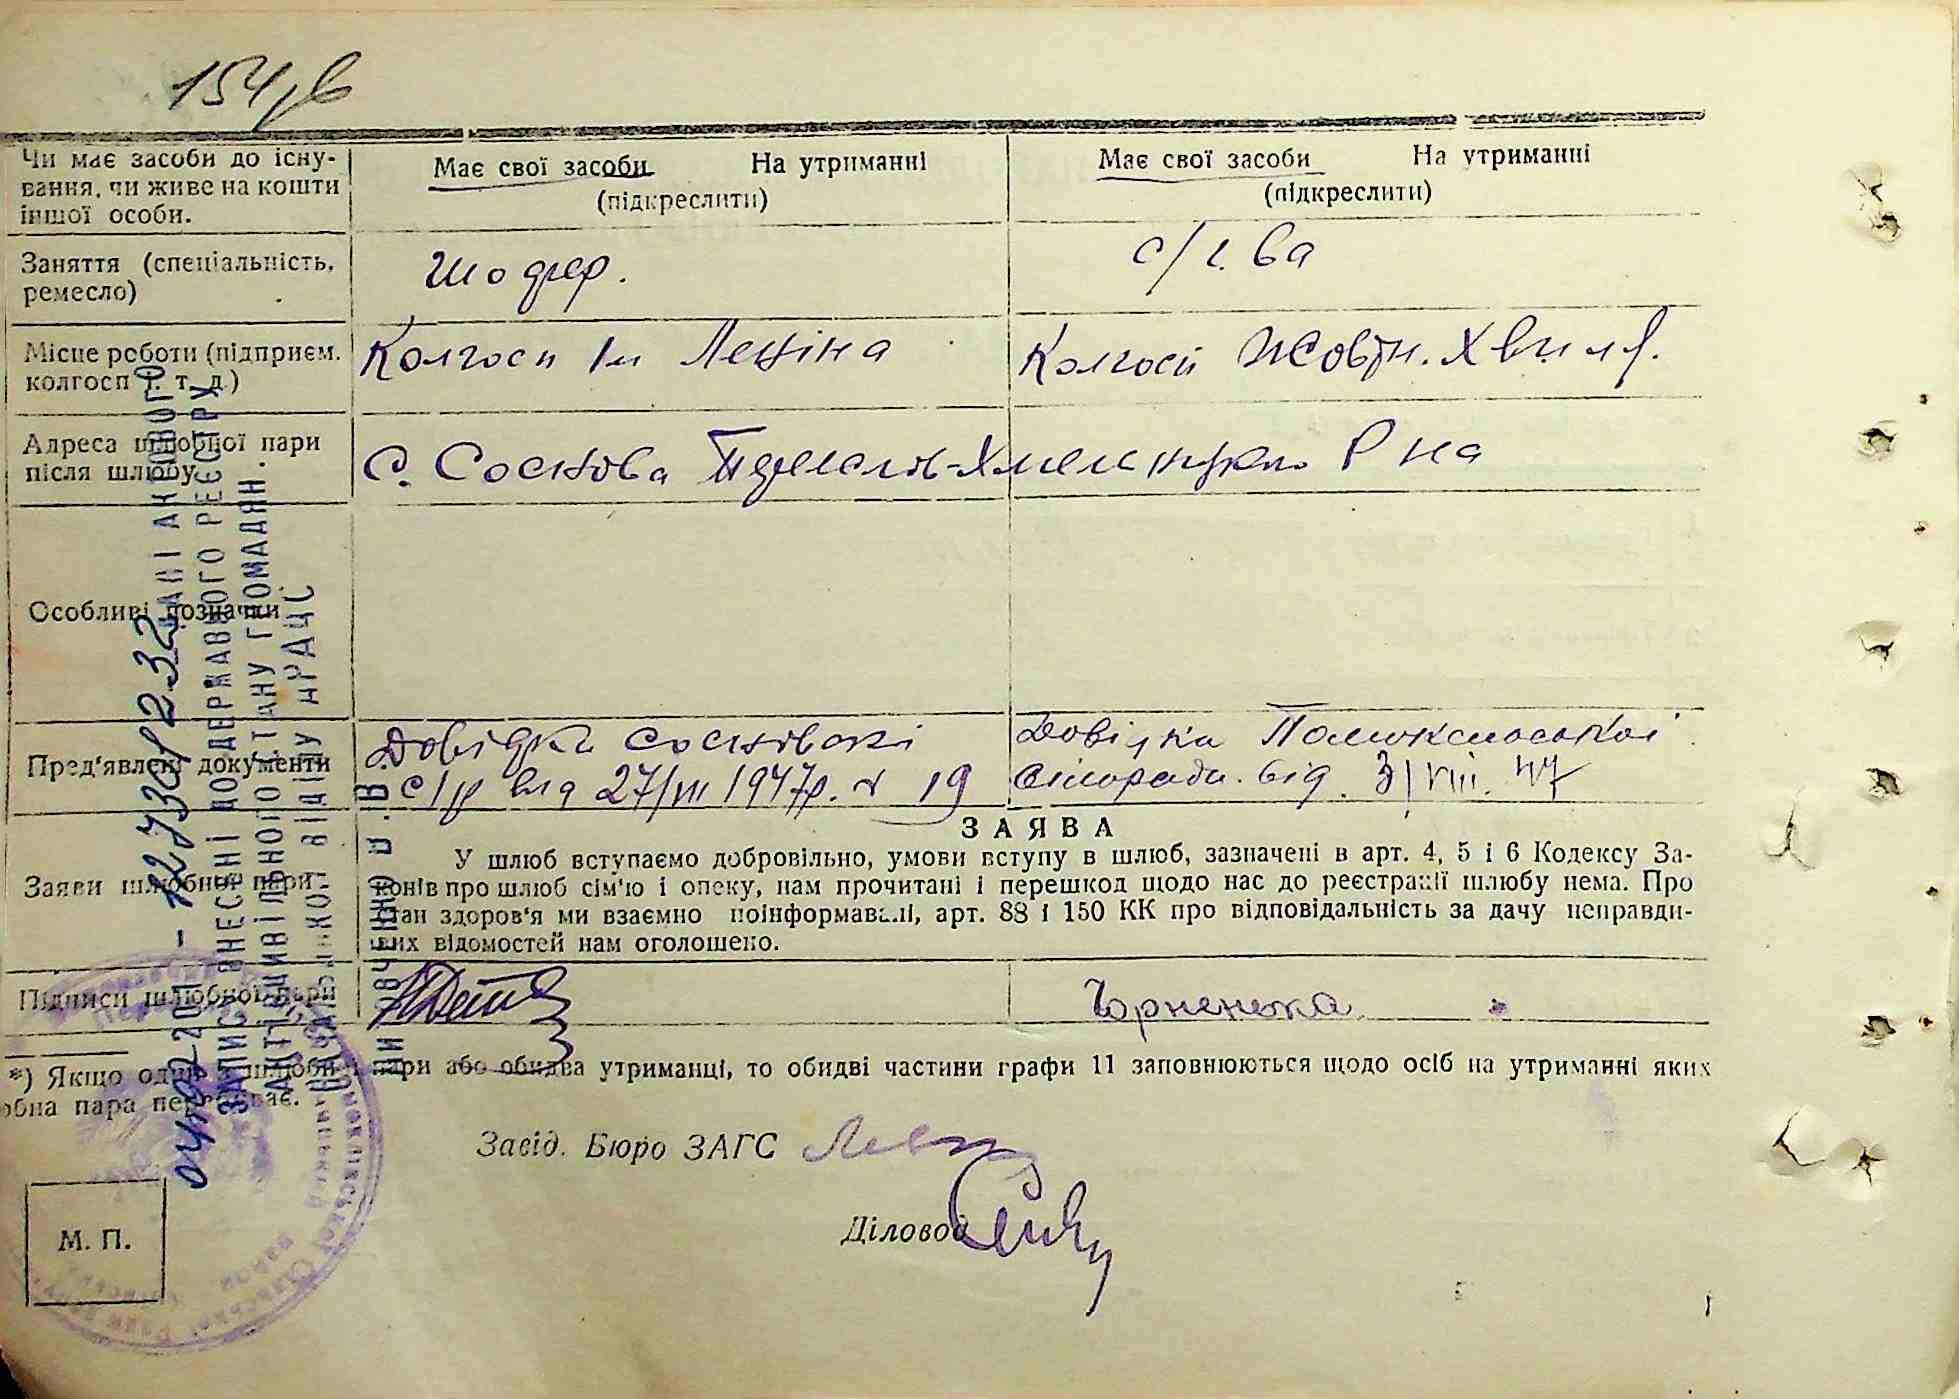 154 зв
Чи має засоби до існу-
вання, чи живе на кошти
іншої особи.
Має свої засоби На утриманні
(підкреслити)
Має свої засоби На утриманні
(підкреслити)
Заняття (спеціальність,
ремесло)
Шофер.
с/г. ва
Місце роботи (підприєм.
колгосп і. т. д.)
Колгосп Ім Леніна
Колгосп Жовтн. Хвиля.
Адреса шлюбної пари
після шлюбу
С. Соснова Переяслав-Хмельницького Р на
Особливі позначки
Пред'явлені документи
Довідка Соснівскі
с/р від 27/VIII 1947р. № 19
Довідка
Сільради від 3/VIII. 47
Заяви шлюбної пари
ЗАЯВА
У шлюб вступаємо добровільно, умови вступу в шлюб, зазначені в арт. 4, 5 і 6 Кодексу За-
конів про шлюб сім'ю і опеку, нам прочитані і перешкод щодо нас до реєстрації шлюбу нема. Про
стан здоров'я ми взаємно поінформавалі, арт. 88 і 150 КК про відповідальність за дачу неправди-
вих відомостей нам оголошено.
Підписи шлюбної пари
Чорненька
*) Якщо один з шлюбної пари або обидва утриманці, то обидві частини графи 11 заповнюються щодо осіб на утриманні яких
шлюбна пара перебуває.
Завід. Бюро ЗАГС
Діловод
М. П.
ДАНІ АКТОВОГО
ЗАПИСУ ВНЕСЕНІ ДО ДЕРЖАВНОГО РЕЄСТРУ
АКТІВ ЦИВІЛЬНОГО СТАНУ ГРОМАДЯН.
НАЧАЛЬНИКОМ ВІДДІЛУ ДРАЦС